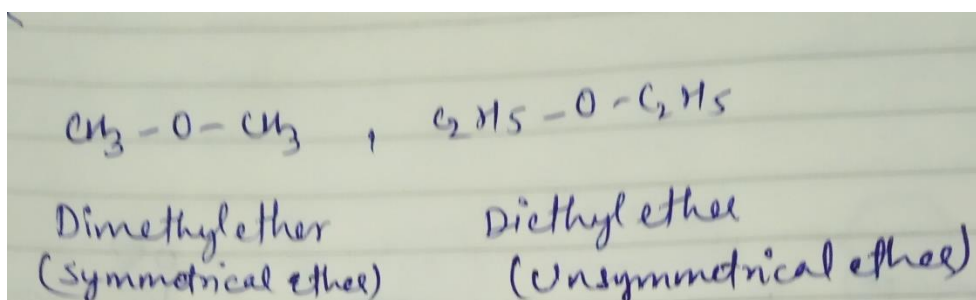 CH3 - O - CH3 , C2H5 - O - C2H5
Dimethylether Diethyl ether
(Symmetrical ether) (Unsymmetrical ether)